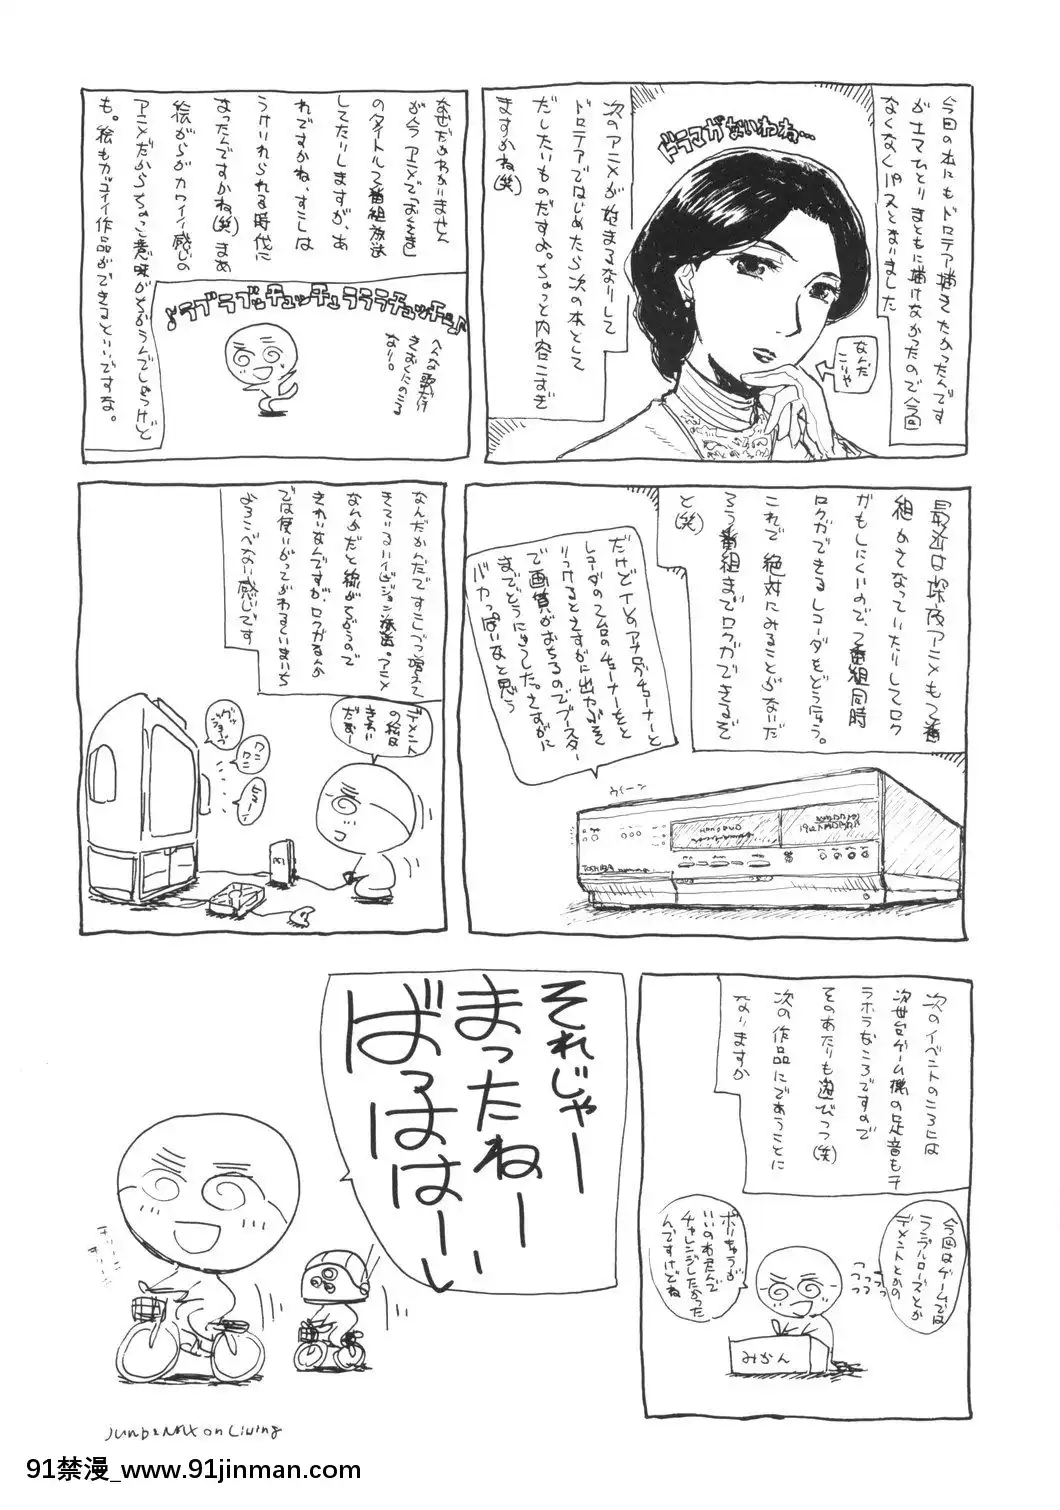 今回の本にもドロテア描きたかったんです
が士マひとりまともに描けなかったので今回
なくなくパスとなりました
ドラマがないわね…
なんだ
こりゃ
次のアニメが始まるなりして
ドロテアではじめたら次の本として
だしたいものだすよ。ちょっと内容こすぎ
ますかね(笑)
なぜだかわかりません
が今アニメで「おくさま」
のタイトルで番組放送
してたりしますが、あ
れですかね、すこしは
うけいれられる時代に
なったんですかね(笑)まあ
絵がらがカワイイ感じの
アニメだからちょっと意味がちがうんでしょうけど
も。絵もカッコイイ作品ができるといいですな。
♪ラブラブッチュッチュラララチュッチュ♪
へんな歌だけ
きおくにのこる
なり。
最近は深夜アニメも2番
組かさなっていたりしてロク
ガもしにくいので、2番組同時
ロクガできるレコーダをどう入。
これで絶対にみることがないだ
ろう番組までロクガできるぞ
と(笑)
だけどTVのアナログチューナーと
レコーダの2ム口のチューナーをと
りつけるとさすがに出力ぶそく
で画質がおちるのでブースター
までどうにゅうした。さすがに
バカっぽいなと思う
ウィーン
TOSHIBA
なんだかんだですこしづつ増えて
きているハイビジョン放送。アニメ
なんかだと線がちがうので
きれいなんですが、ロクガなんか
では使いがってがわるくいまいち
よろこべない感じです
デメント
の絵は
きれい
だなー
グッ
ジョーブ
ワン
ワン
ヒューン
次のイベントのころには
次世代ゲーム機の足音もチ
ラホラなころですので
そのあたりも遊びつつ(笑)
次の作品にであうことに
なりますか
今回はゲームでは
ランブルローズとか
デメントとかの
つっ
つっつ
つっつっ
ボリちゅうが
いいのあたんで
チャレンジしたかった
んですけどね
みかん
それじゃー
まったねーい
ばっははーい
Junb&Max on Living
91禁漫_www.91jinman.com